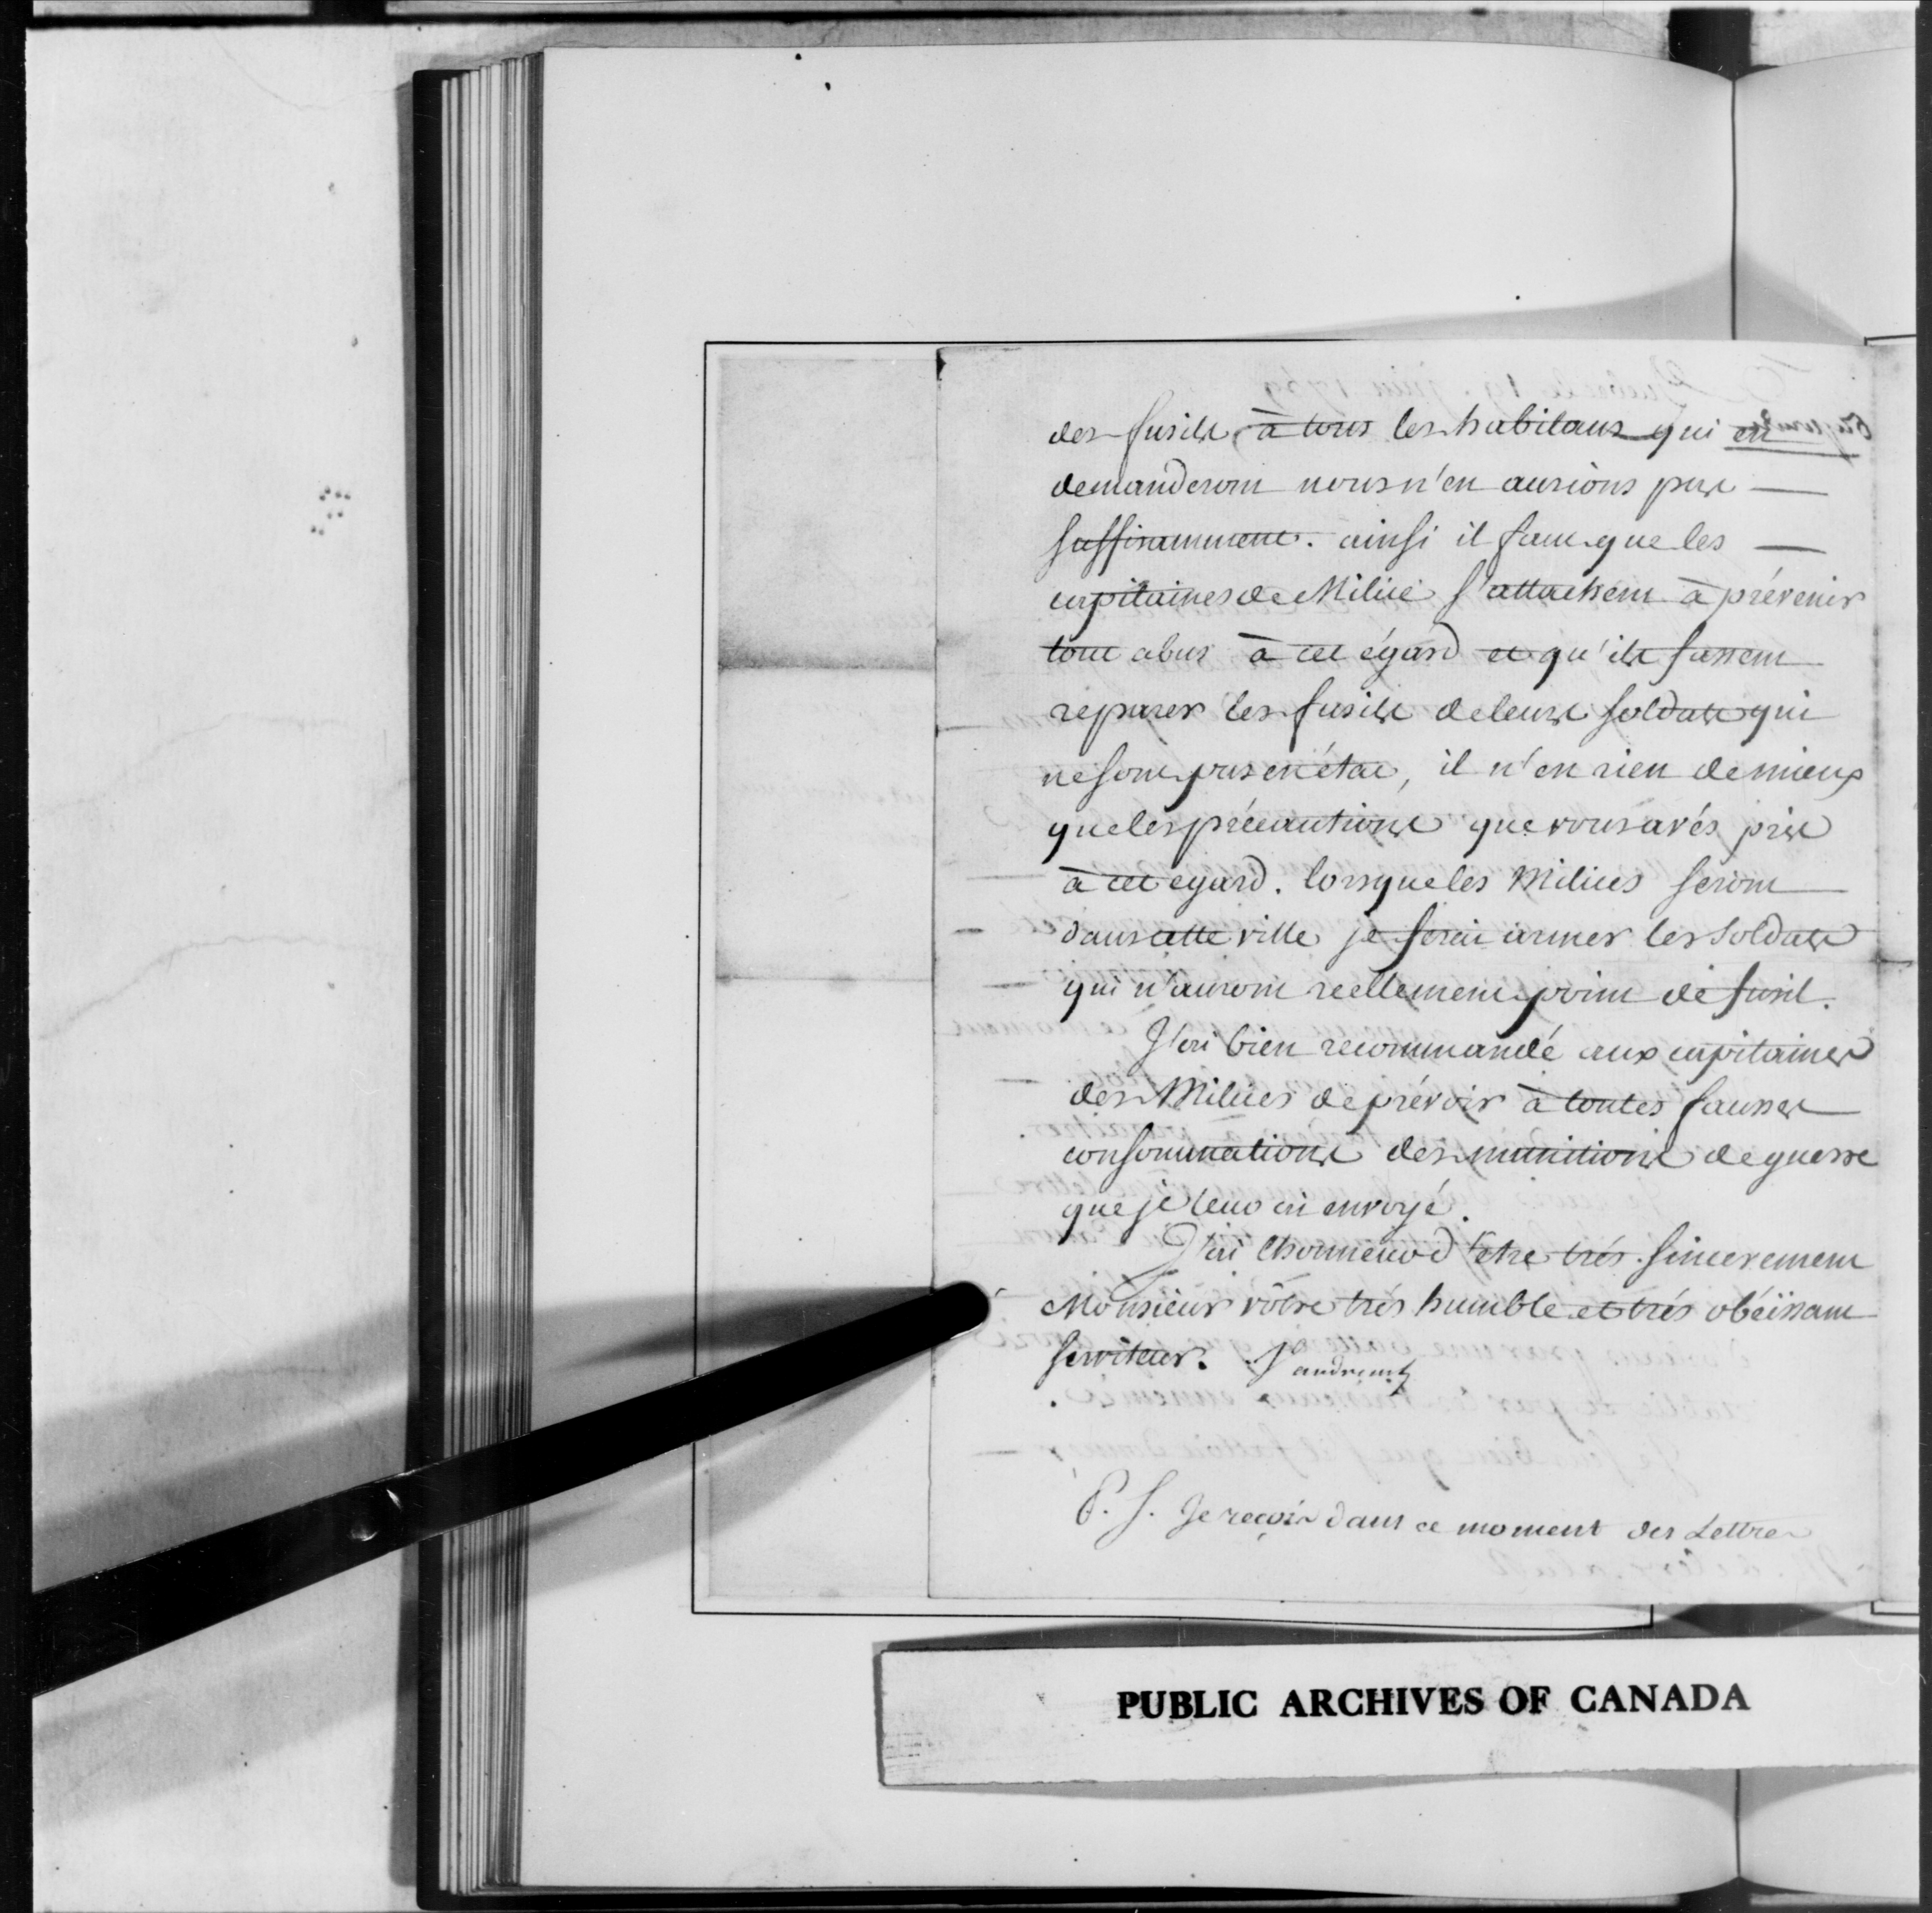 des fusils à tous les habitans qui en
demanderont nous n'en aurions pas
suffisamment. ainsi il faut que les
capitaines de Milice s'attachent à prévenir
tout abus à cet égard et qu'ils fassent
reparer les fusils de leurs soldats qui
ne sont pas en état, il n'en rien de mieux
que les précautions que vous avés pris
à cet egard. lorsque les Milices seront
dans cette ville je ferai armer les soldats
qui n'auront reellement point de fusil.
J'ai bien recommandé aux capitaines
des Milices de prévoir à toutes fausses
consommations des munitions de guerre
que je leur ai envoyé.
J'ai l'honneur d'etre trés sincerement
Monsieur vôtre trés humble et trés obéissant
serviteur.
P. S. Je reçois dans ce moment des Lettres
PUBLIC ARCHIVES OF CANADA